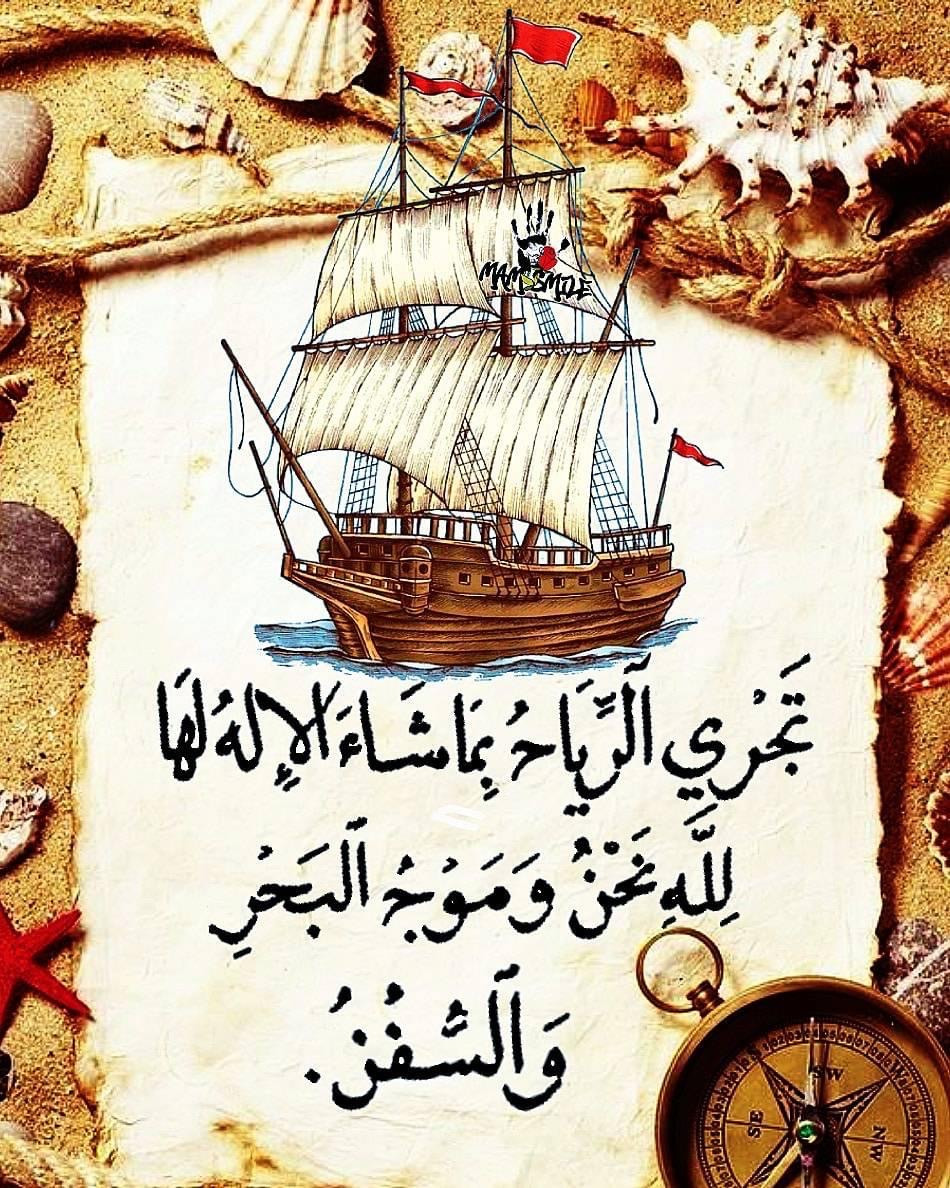 MAM SMILE
تَجْرِي ٱلرِّيَاحُ بِمَا شَاءَ الإِلهُ لَهَا
لِلَّهِ نَحْنُ وَمَوْجُ ٱلبَحْرِ
وَٱلسُّفُنُ.
SW
SE
W
NW